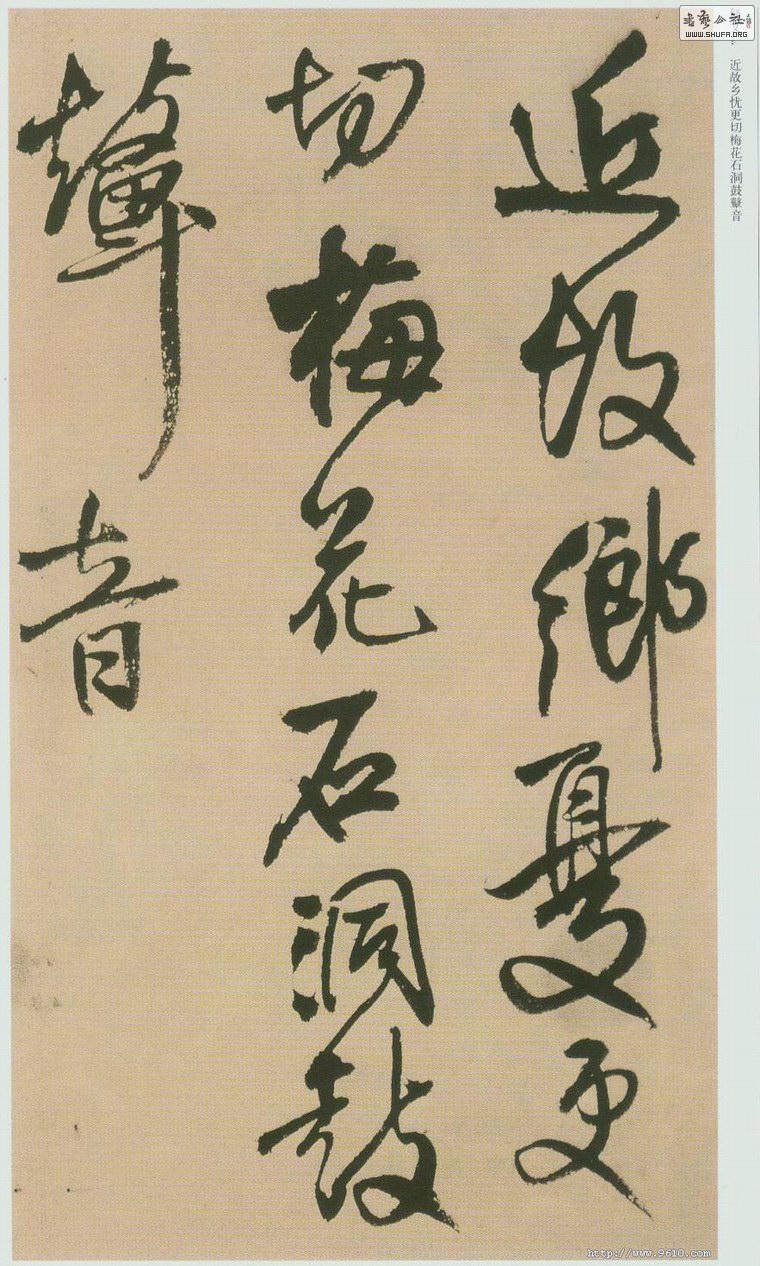 近故鄉憂更
切梅花石洞鼓
鼙音
近故乡忧更切梅花石洞鼓鼙音
书艺公社
www.SHUFA.ORG
http://www.9610.com